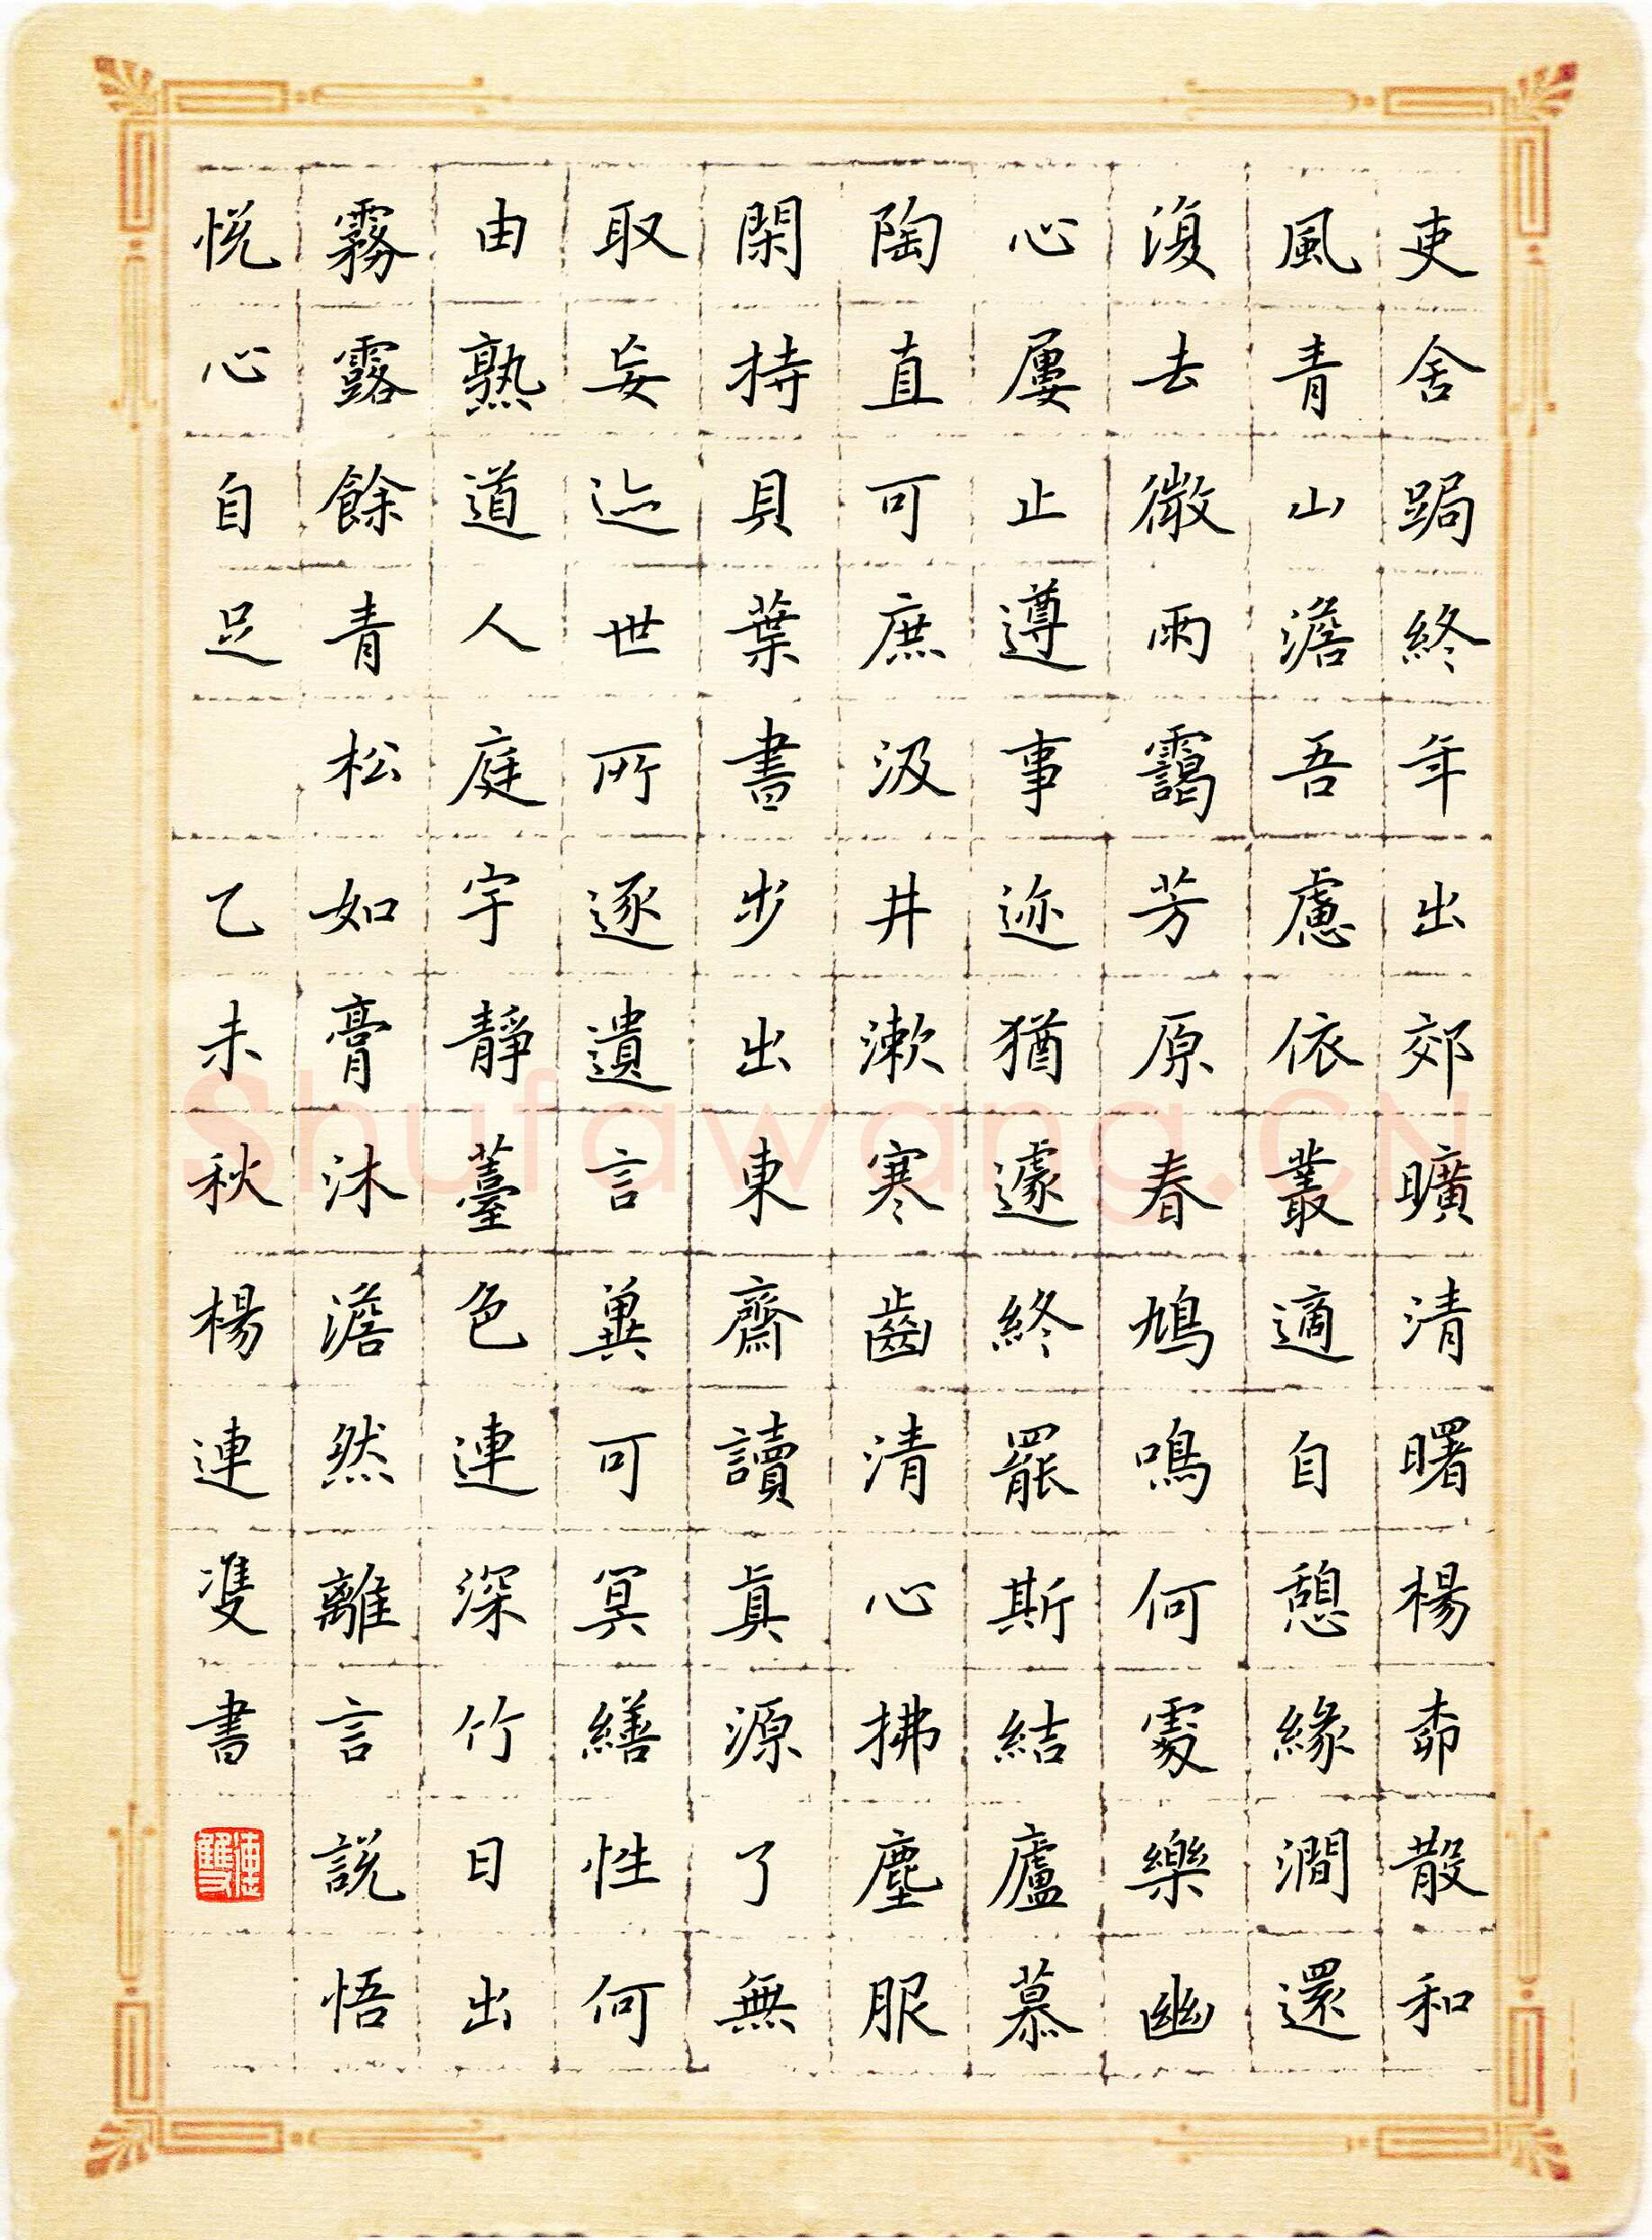 吏舍跼終年出郊曠清曙楊柳散和
風青山澹吾慮依叢適自憩緣澗還
復去微雨靄芳原春鳩鳴何處樂幽
心屢止遵事迹猶遽終罷斯結廬慕
陶直可庶汲井漱寒齒清心拂塵服
閑持貝葉書步出東齋讀真源了無
取妄迹世所逐遺言冀可冥繕性何
由熟道人庭宇靜薹色連深竹日出
霧露餘青松如膏沐澹然離言說悟
悅心自足 乙未秋楊連雙書
連雙
Shufawang.CN